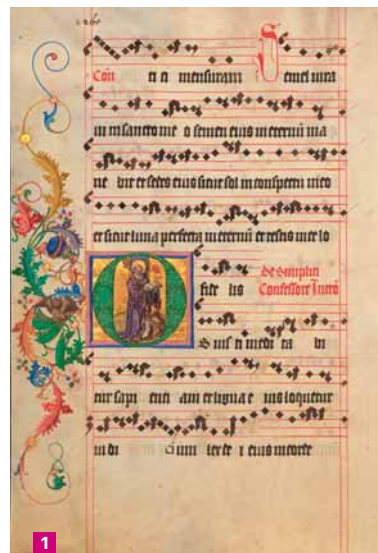 Con ti a mensuram Semel iura
ui in sancto me o semen eius in eternū ma
ne bit et sedes eius sicut sol in conspectu meo
et sicut luna perfecta in eternū et testis in ce lo
fide lis De Simplici
Confessore Intro
O S iusti medi ta bi
tur sapi enti am et lingua e ius loquetur
iu di cium lex de i eius in corde
1